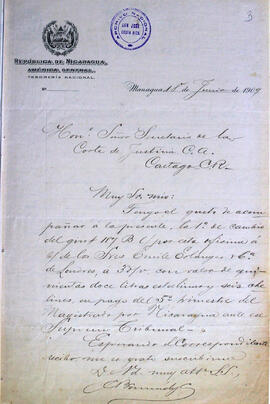 3
ARCHIVO NACIONAL
SAN JOSÉ
COSTA RICA
REPÚBLICA DE NICARAGUA,
AMÉRICA CENTRAL,
TESORERÍA NACIONAL.
Managua, 1º de Junio de 1909
Hon. Señor Secretario de la
Corte de Justicia C. A.
Cartago C.R.
Muy Sr. mio:
Tengo el gusto de acom
pañar á la presente, la 1ª de cambio
del giro nº 117 B por esta oficina á
c/ de los Sres Emile Erlanger & Cº
de Londres, á 3 d/v. con valor de qui
nientas doce libras esterlinas y seis che
lines, en pago del 5º trimestre del
Magistrado por Nicaragua ante ese
Supremo Tribunal.
Esperando el correspondiente
recibo, me es grato suscribirme
De Ud. muy atto. S.S.